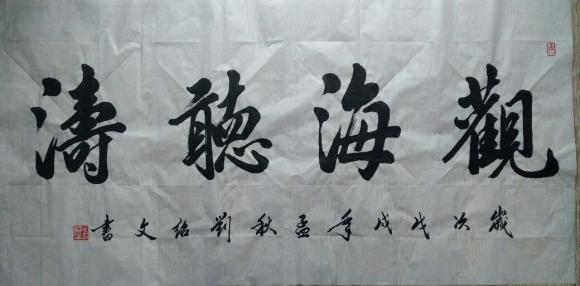 觀海聽濤
歲次戊戌年孟秋劉紹文書